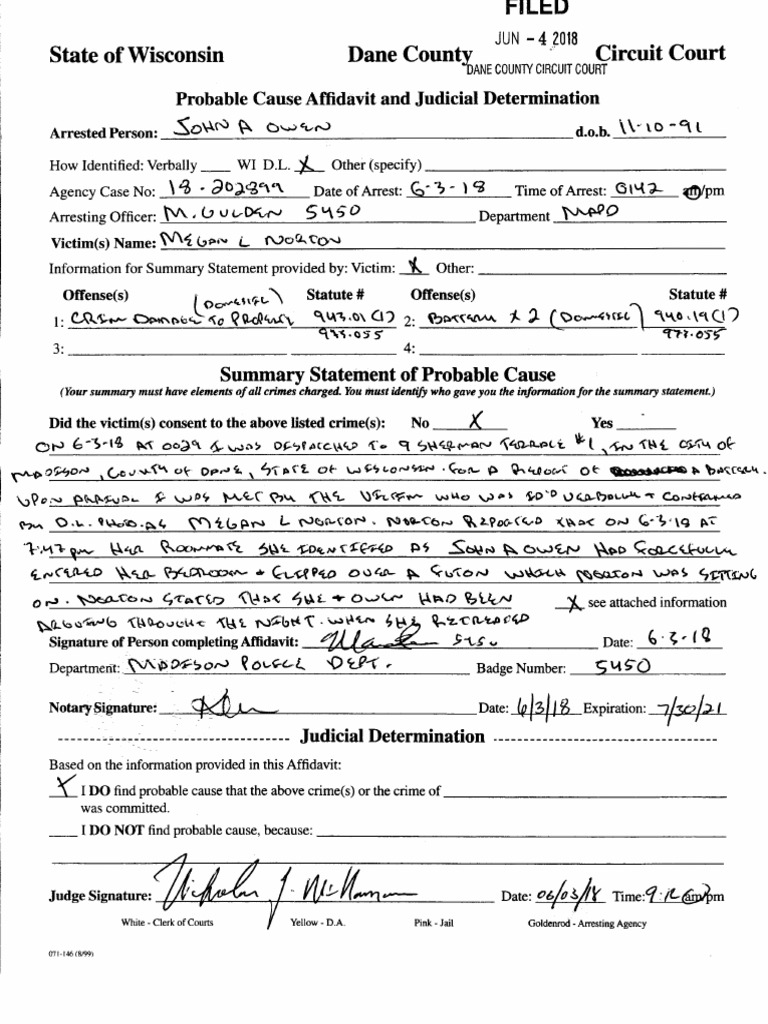 FILED
JUN - 4 2018
State of Wisconsin Dane County Circuit Court
DANE COUNTY CIRCUIT COURT
Probable Cause Affidavit and Judicial Determination
Arrested Person: JOHN A OWEN d.o.b. 11-10-91
How Identified: Verbally ____ WI D.L. X Other (specify)
Agency Case No: 18-202899 Date of Arrest: 6-3-18 Time of Arrest: 0142 am/pm
Arresting Officer: M. GULDEN 5450 Department MAPD
Victim(s) Name: MEGAN L NORTON
Information for Summary Statement provided by: Victim: X Other:
Offense(s) (DOMESTIC) Statute # Offense(s) Statute #
1: CRIM DAMAGE TO PROPERTY 943.01(1) 2: BATTERY X 2 (DOMESTIC) 940.19(1)
973.055 973.055
3: 4:
Summary Statement of Probable Cause
(Your summary must have elements of all crimes charged. You must identify who gave you the information for the summary statement.)
Did the victim(s) consent to the above listed crime(s): No X Yes
ON 6-3-18 AT 0029 I WAS DISPATCHED TO 9 SHERMAN TERRACE #1, IN THE CITY OF
MADISON, COUNTY OF DANE, STATE OF WISCONSIN. FOR A REPORT OF A BATTERY.
UPON ARRIVAL I WAS MET BY THE VICTIM WHO WAS ID'D VERBALLY + CONFIRMED
BY D.L. PHOTO. AS MEGAN L NORTON. NORTON REPORTED THAT ON 6-3-18 AT
7:47 pm HER ROOMMATE SHE IDENTIFIED AS JOHN A OWEN HAD FORCEFULLY
ENTERED HER BEDROOM + FLIPPED OVER A FUTON WHICH NORTON WAS SITTING
ON. NORTON STATED THAT SHE + OWEN HAD BEEN X see attached information
ARGUING THROUGHT THE NIGHT. WHEN SHE RETREATED
Signature of Person completing Affidavit: 5450 Date: 6-3-18
Department: MADISON POLICE DEPT. Badge Number: 5450
Notary Signature: Date: 6/3/18 Expiration: 7/30/21
Judicial Determination
Based on the information provided in this Affidavit:
X I DO find probable cause that the above crime(s) or the crime of
was committed.
I DO NOT find probable cause, because:
Judge Signature: Nicholas J. McNamara Date: 06/03/18 Time: 9:12 am/pm
White - Clerk of Courts Yellow - D.A. Pink - Jail Goldenrod - Arresting Agency
071-146 (8/99)